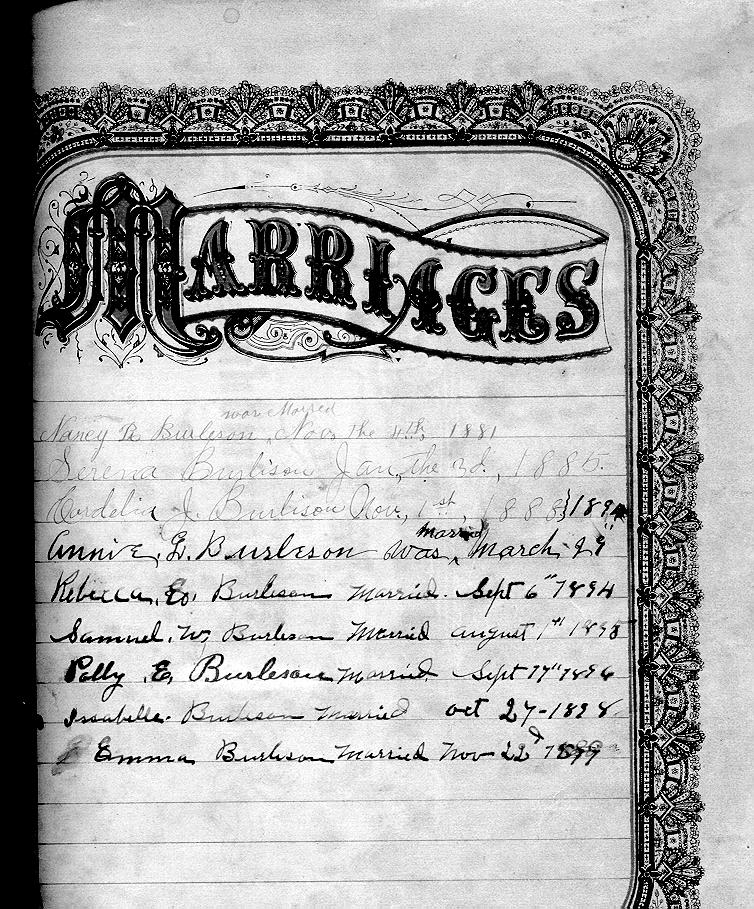 MARRIAGES
was Maried
Nancy R. Burleson, Nov, the 4th, 1881
Serena Burlison Jan, the 3d, 1885.
Cordelia J. Burlison Nov, 1st, 1888}
married 1894
Annie, L. Burleson was, March, 29"
Rebecca, E, Burleson Married. Sept 6" 1894
Samuel, W, Burleson Married august 1st 1895
Polly, E, Burleson Married, Sept 17" 1896
Issabelle. Burleson Married oct 27-1898
Emma Burleson Married Nov 22d 1899